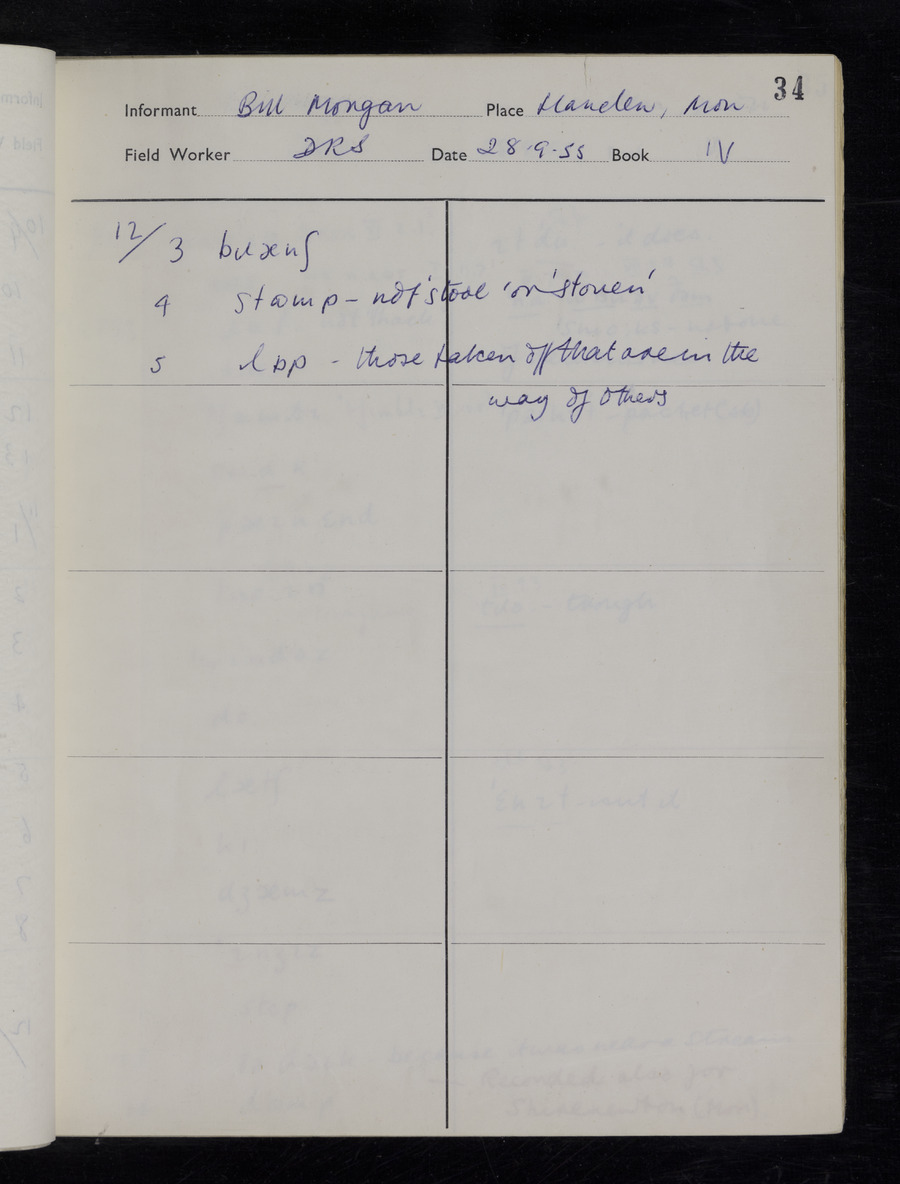 34
Informant Bill Morgan Place Llanelen, Mon
Field Worker DRS Date 28.9.55 Book IV
12/3
4 stamp - not 'stool' or 'stoven'
5 lɒp - those taken off that are in the
way of others